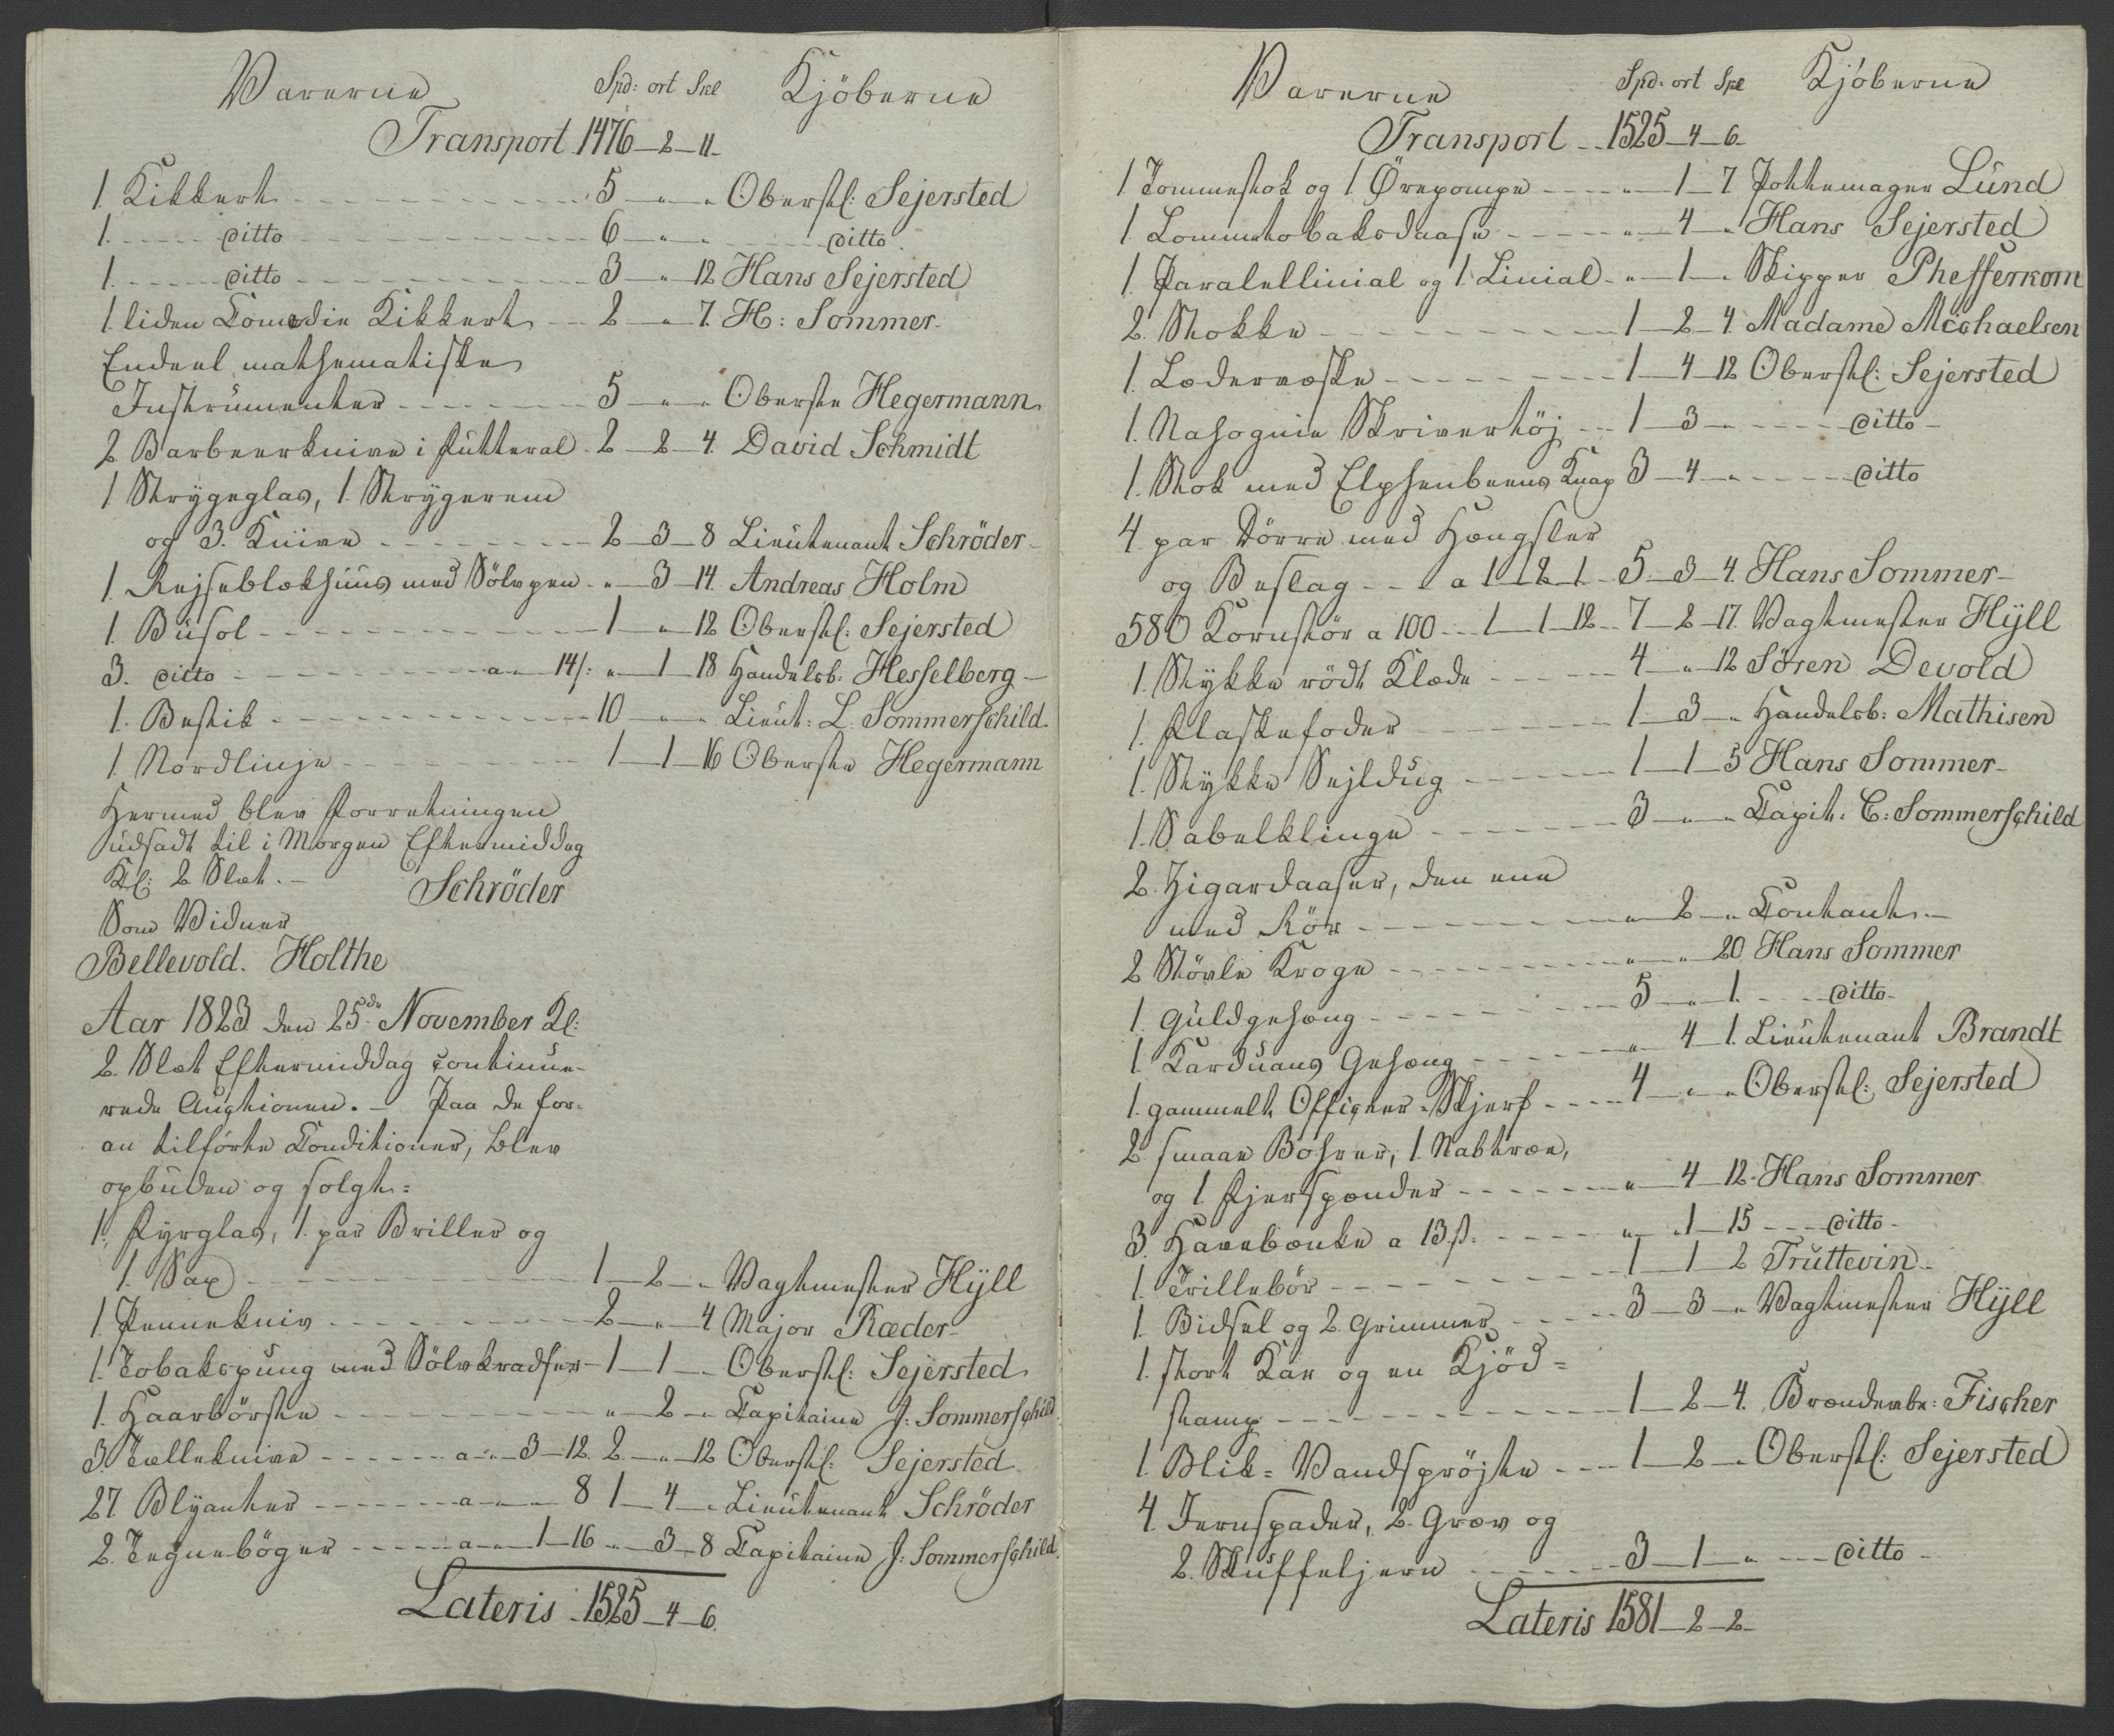 Varerne Spd: ort Skl Kjöberne
Transport 1476-2-11-
1 Kikkert - - - 5 - " - " Oberstl: Sejersted
1. - - - ditto - - - 6 - " - " - - - ditto.
1. - - - ditto - - - 3 - " - 12 Hans Sejersted
1. liden Comedie Kikkert - - 2 - " - 7. H: Sommer-
Endeel mathematiske
Instrumenter - - - 5 - " - " Oberste Hegermann
2 Barbeerknive i Futteral - 2 - 2 - 4. David Schmidt
1 Strygeglas, 1. Strygerem
og 3. Knive - - - 2 - 3 - 8 Lieutenant Schröder-
1. Rejseblækhuus med Sölvpen - " - 3 - 14. Andreas Holm
1. Busol - - - 1 - " - 12 Oberstl: Sejersted
3. ditto - - - a - " - 14/: " - 1 - 18 Handelsb: Hesselberg-
1. Bestik - - - 10 - " - " Lieut: L. Sommerschild.
1. Nordlinje - - - 1 - 1 - 16 Oberste Hegermann
Hermed blev Forretningen
udsadt til i Morgen Eftermiddag
Kl: 2 Slæt. -
Schröder
Som Vidner
Bellevold. Holthe
Aar 1823 den 25de November Kl:
2. Slæt Eftermiddag continue-
rede Auctionen. - Paa de for-
an tilförte Conditioner, blev
opbuden og solgt:
1. Fyrglas, 1. par Briller og
1. Sax - - - 1 - 2 - " Vagtmester Hÿll
1. Pennekniv - - - 2 - " - 4 Major Ræder-
1. Tobakspung med Sölvkradser - 1 - 1 - " Oberstl: Sejersted
1. Haarbörste - - - " - 2 - " Capitaine J: Sommerschild.
3. Tælleknive - - - a - " - 3 - 12. 2 - " - 12 Oberstl: Sejersted
27. Blÿanter - - - a - " - " 8 1 - 4 - " Lieutenant Schröder
2. Tegnebøger - - - a - " - 1 - 16 - " - 3 - 8 Capitaine J: Sommerschild.
Lateris - 1525 - 4 - 6.
Varerne Spd: ort Skl Kjöberne
Transport - - 1525 - 4 - 6-
1 Tommestok og 1 Örepompe - - - " - 1 - 7 Pottemager Lund
1. Lommetobaksdaase - - - " - 4 - " Hans Sejersted
1. Paralellinial og 1. Linial - " - 1 - " Skipper Phefferkorn
2. Stokke - - - 1 - 2 - 4. Madame Michaelsen
1. Lædervæske - - - 1 - 4 - 12 Oberstl: Sejersted
1. Mahognie Skrivertöj - - 1 - 3 - " - - - ditto -
1. Stok med Elphenbeens Knap 3 - 4 - " - - - ditto
4. par Dörre med Hængsler
og Beslag - - - a 1 - 2 - 1 - 5 - 3 - 4. Hans Sommer-
580 Kornstör a 100 - - 1 - 1 - 12 - - 7 - 2 - 17. Vagtmester Hÿll
1. Stykke rödt Klæde - - - 4 - " - 12 Sören Devold
1. Flaskefoder - - - 1 - 3 - " Handelsb: Mathisen
1. Stykke Sejldug - - - 1 - 1 - 5 Hans Sommer-
1. Sabelklinge - - - 3 - " - " Capit: C: Sommerschild
2. Zigardaaser, den ene
med Rör - - - " - 2 - " Contant. -
2 Stövle Kroge - - - " - " - 20. Hans Sommer
1. Guldgehæng - - - 5 - " - 1. - - - ditto-
1. Carduans Gehæng - - - " - 4 - 1. Lieutenant Brandt
1. gammelt Officeer-Skjerf - - - 4 - " - " Oberstl: Sejersted
2. smaae Bohrer, 1. Nabtræe,
og 1 Fjerspænder - - - " - 4 - 12 - Hans Sommer
3. Havebænke a 13.s. - - - " - 1 - 15 - - - ditto-
1. Trillebör - - - 1 - 1 - 2 Truttevin-
1. Bidsel og 2. Grimmer - - - 3 - 3 - " Vagtmester Hÿll
1. stort Kar og en Kjöd-
stamp - - - 1 - 2 - 4. Brændevbr: Fischer
1. Blik-Vandspröjte - - - 1 - 2 - " Oberstl: Sejersted
4. Jernspader, 2. Græv og
2. Skuffeljern - - - 3 - 1 - " - - - ditto -
Lateris 1581 - 2 - 2-